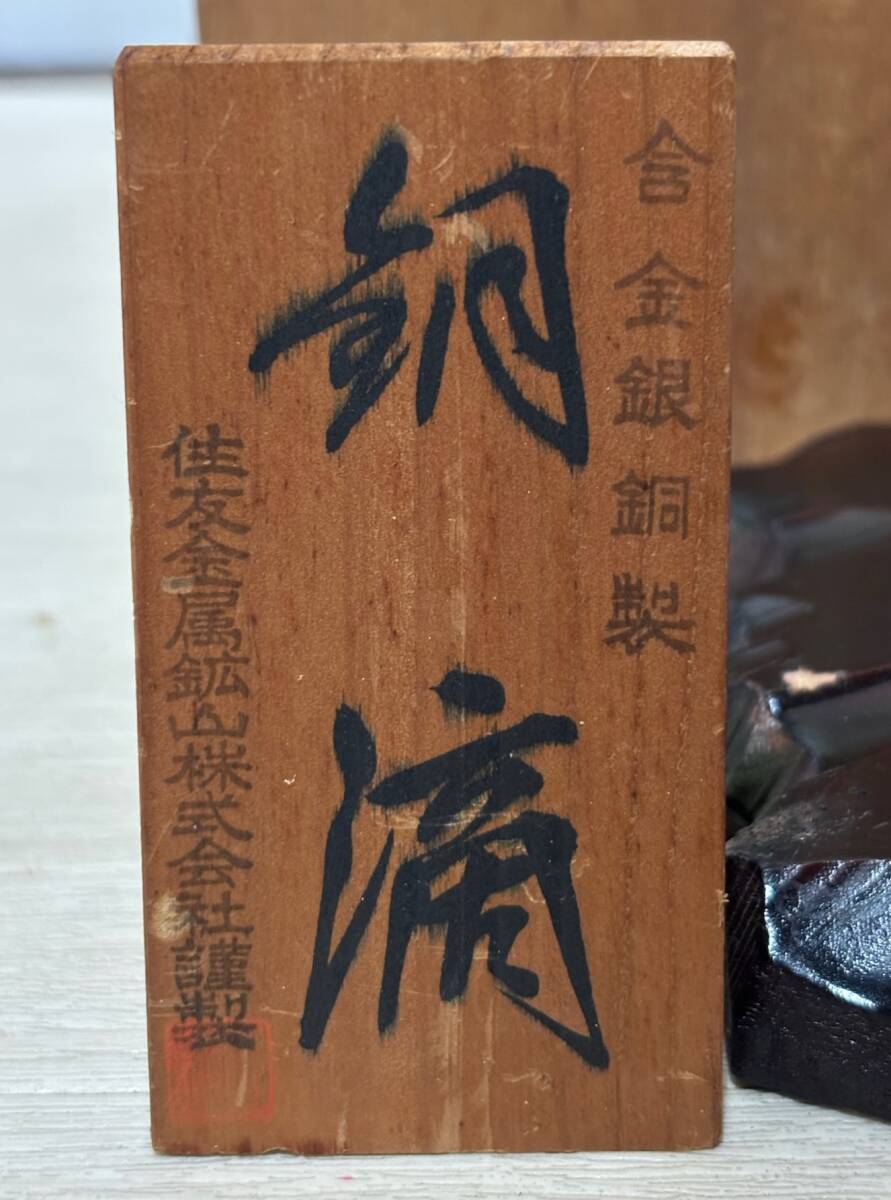 含金銀銅製
銅滴
住友金属鉱山株式会社謹製